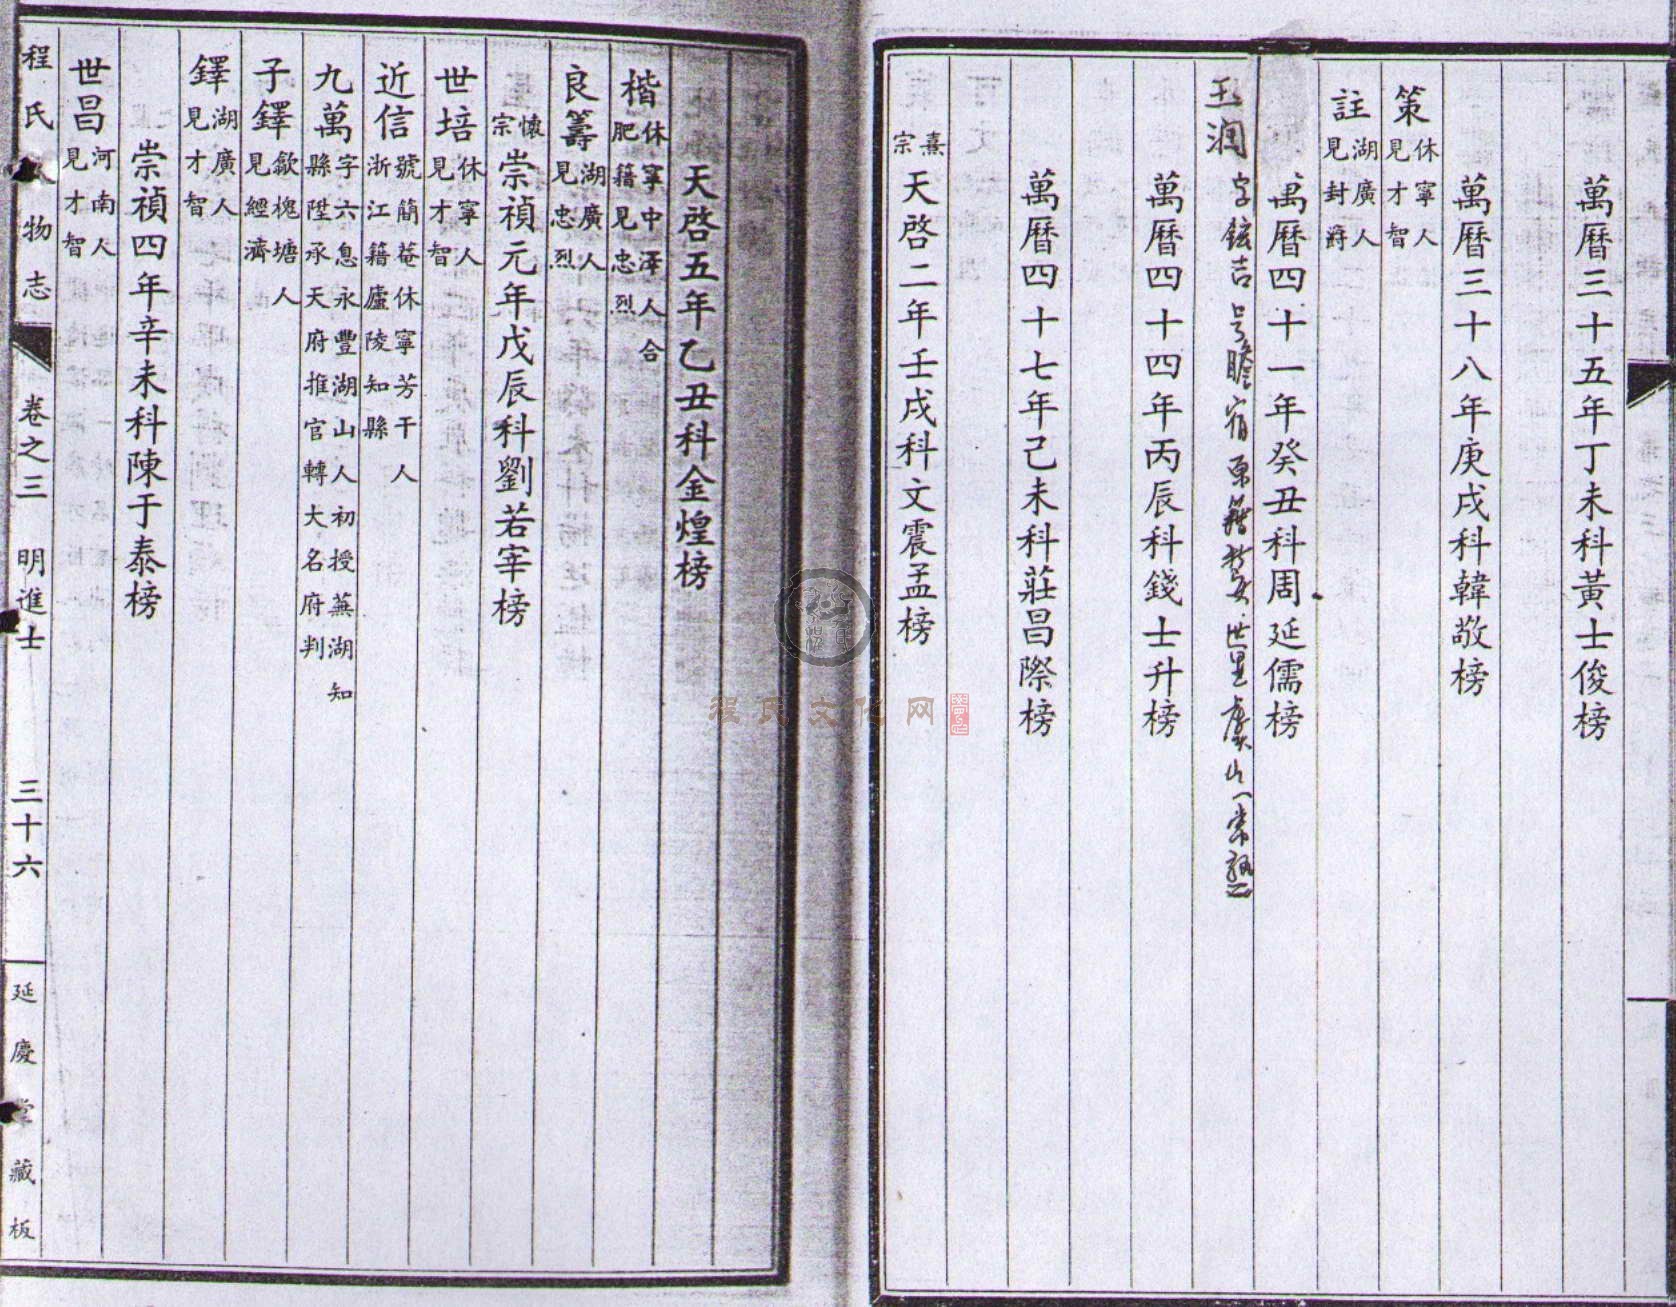 萬曆三十五年丁未科黃士俊榜
萬曆三十八年庚戌科韓敬榜
策 休寧人見才智
註 湖廣人見封爵
萬曆四十一年癸丑科周延儒榜
玉润 字鉉吉 号瞻宿 原籍 世里虞山(常熟
萬曆四十四年丙辰科錢士升榜
萬曆四十七年己未科莊昌際榜
熹宗 天啓二年壬戌科文震孟榜
天啓五年乙丑科金煌榜
楷 休寧中澤人合肥籍見忠烈
良籌 湖廣人見忠烈
懷宗 崇禎元年戊辰科劉若宰榜
世培 休寧人見才智
近信 號簡菴休寧芳干人浙江籍廬陵知縣
九萬 字六息永豐湖山人初授蕪湖知縣陞承天府推官轉大名府判
子鐸 歙槐塘人見經濟
鐸 湖廣人見才智
崇禎四年辛未科陳于泰榜
世昌 河南人見才智
程氏人物志 卷之三 明進士 三十六 延慶堂藏板
程氏文化网